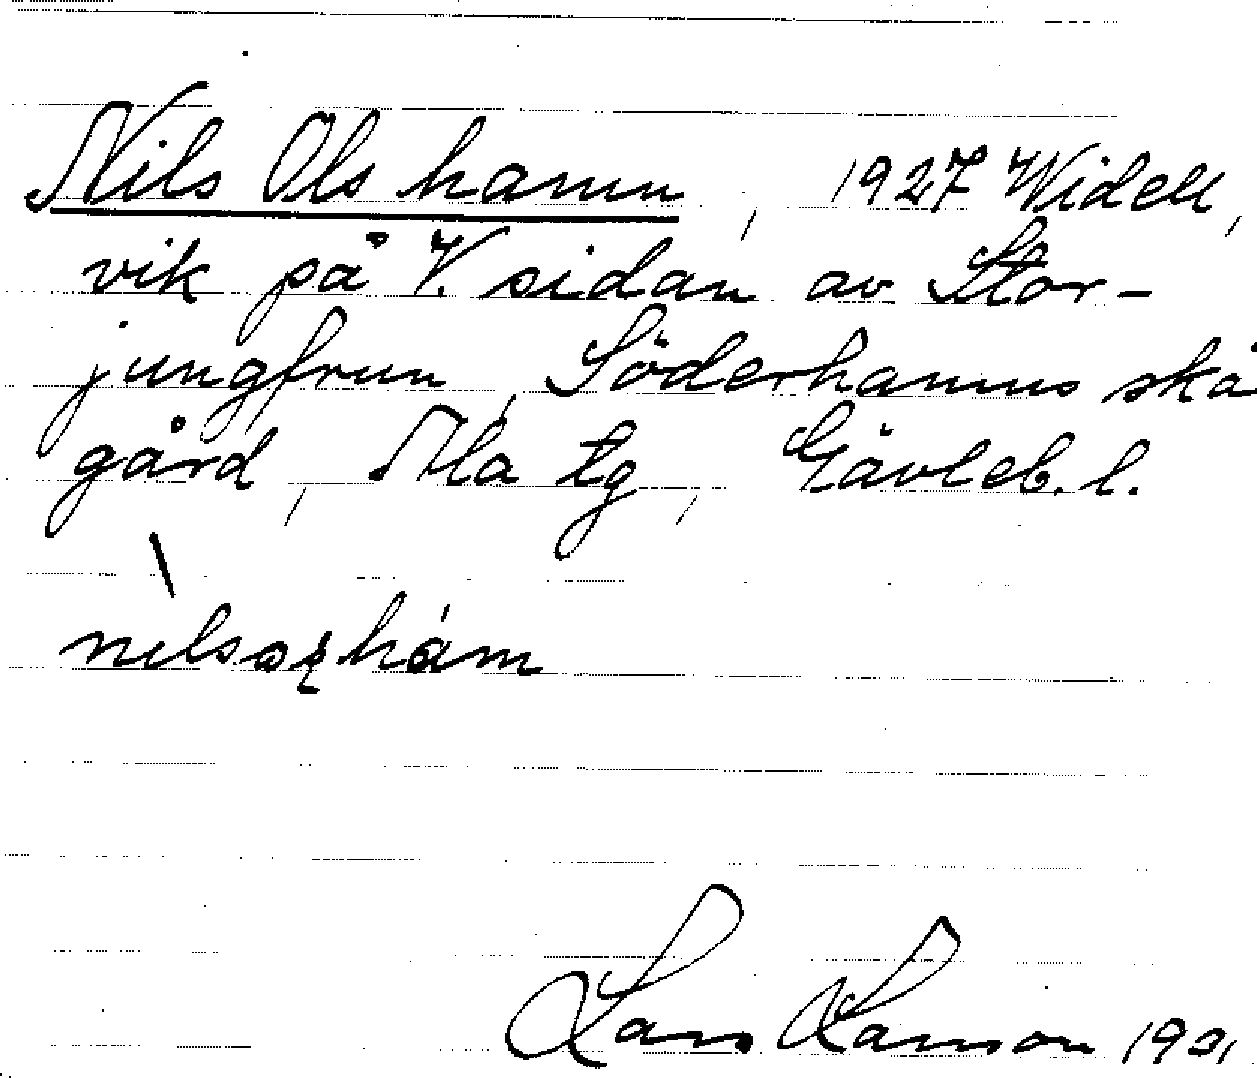 Nils Ols hamn, 1927 Widell,
vik på V. sidan av Stor-
jungfrun, Söderhamns skä
gård, Ala tg, Gävleb. l.
nilsoshamn
Lars Larson